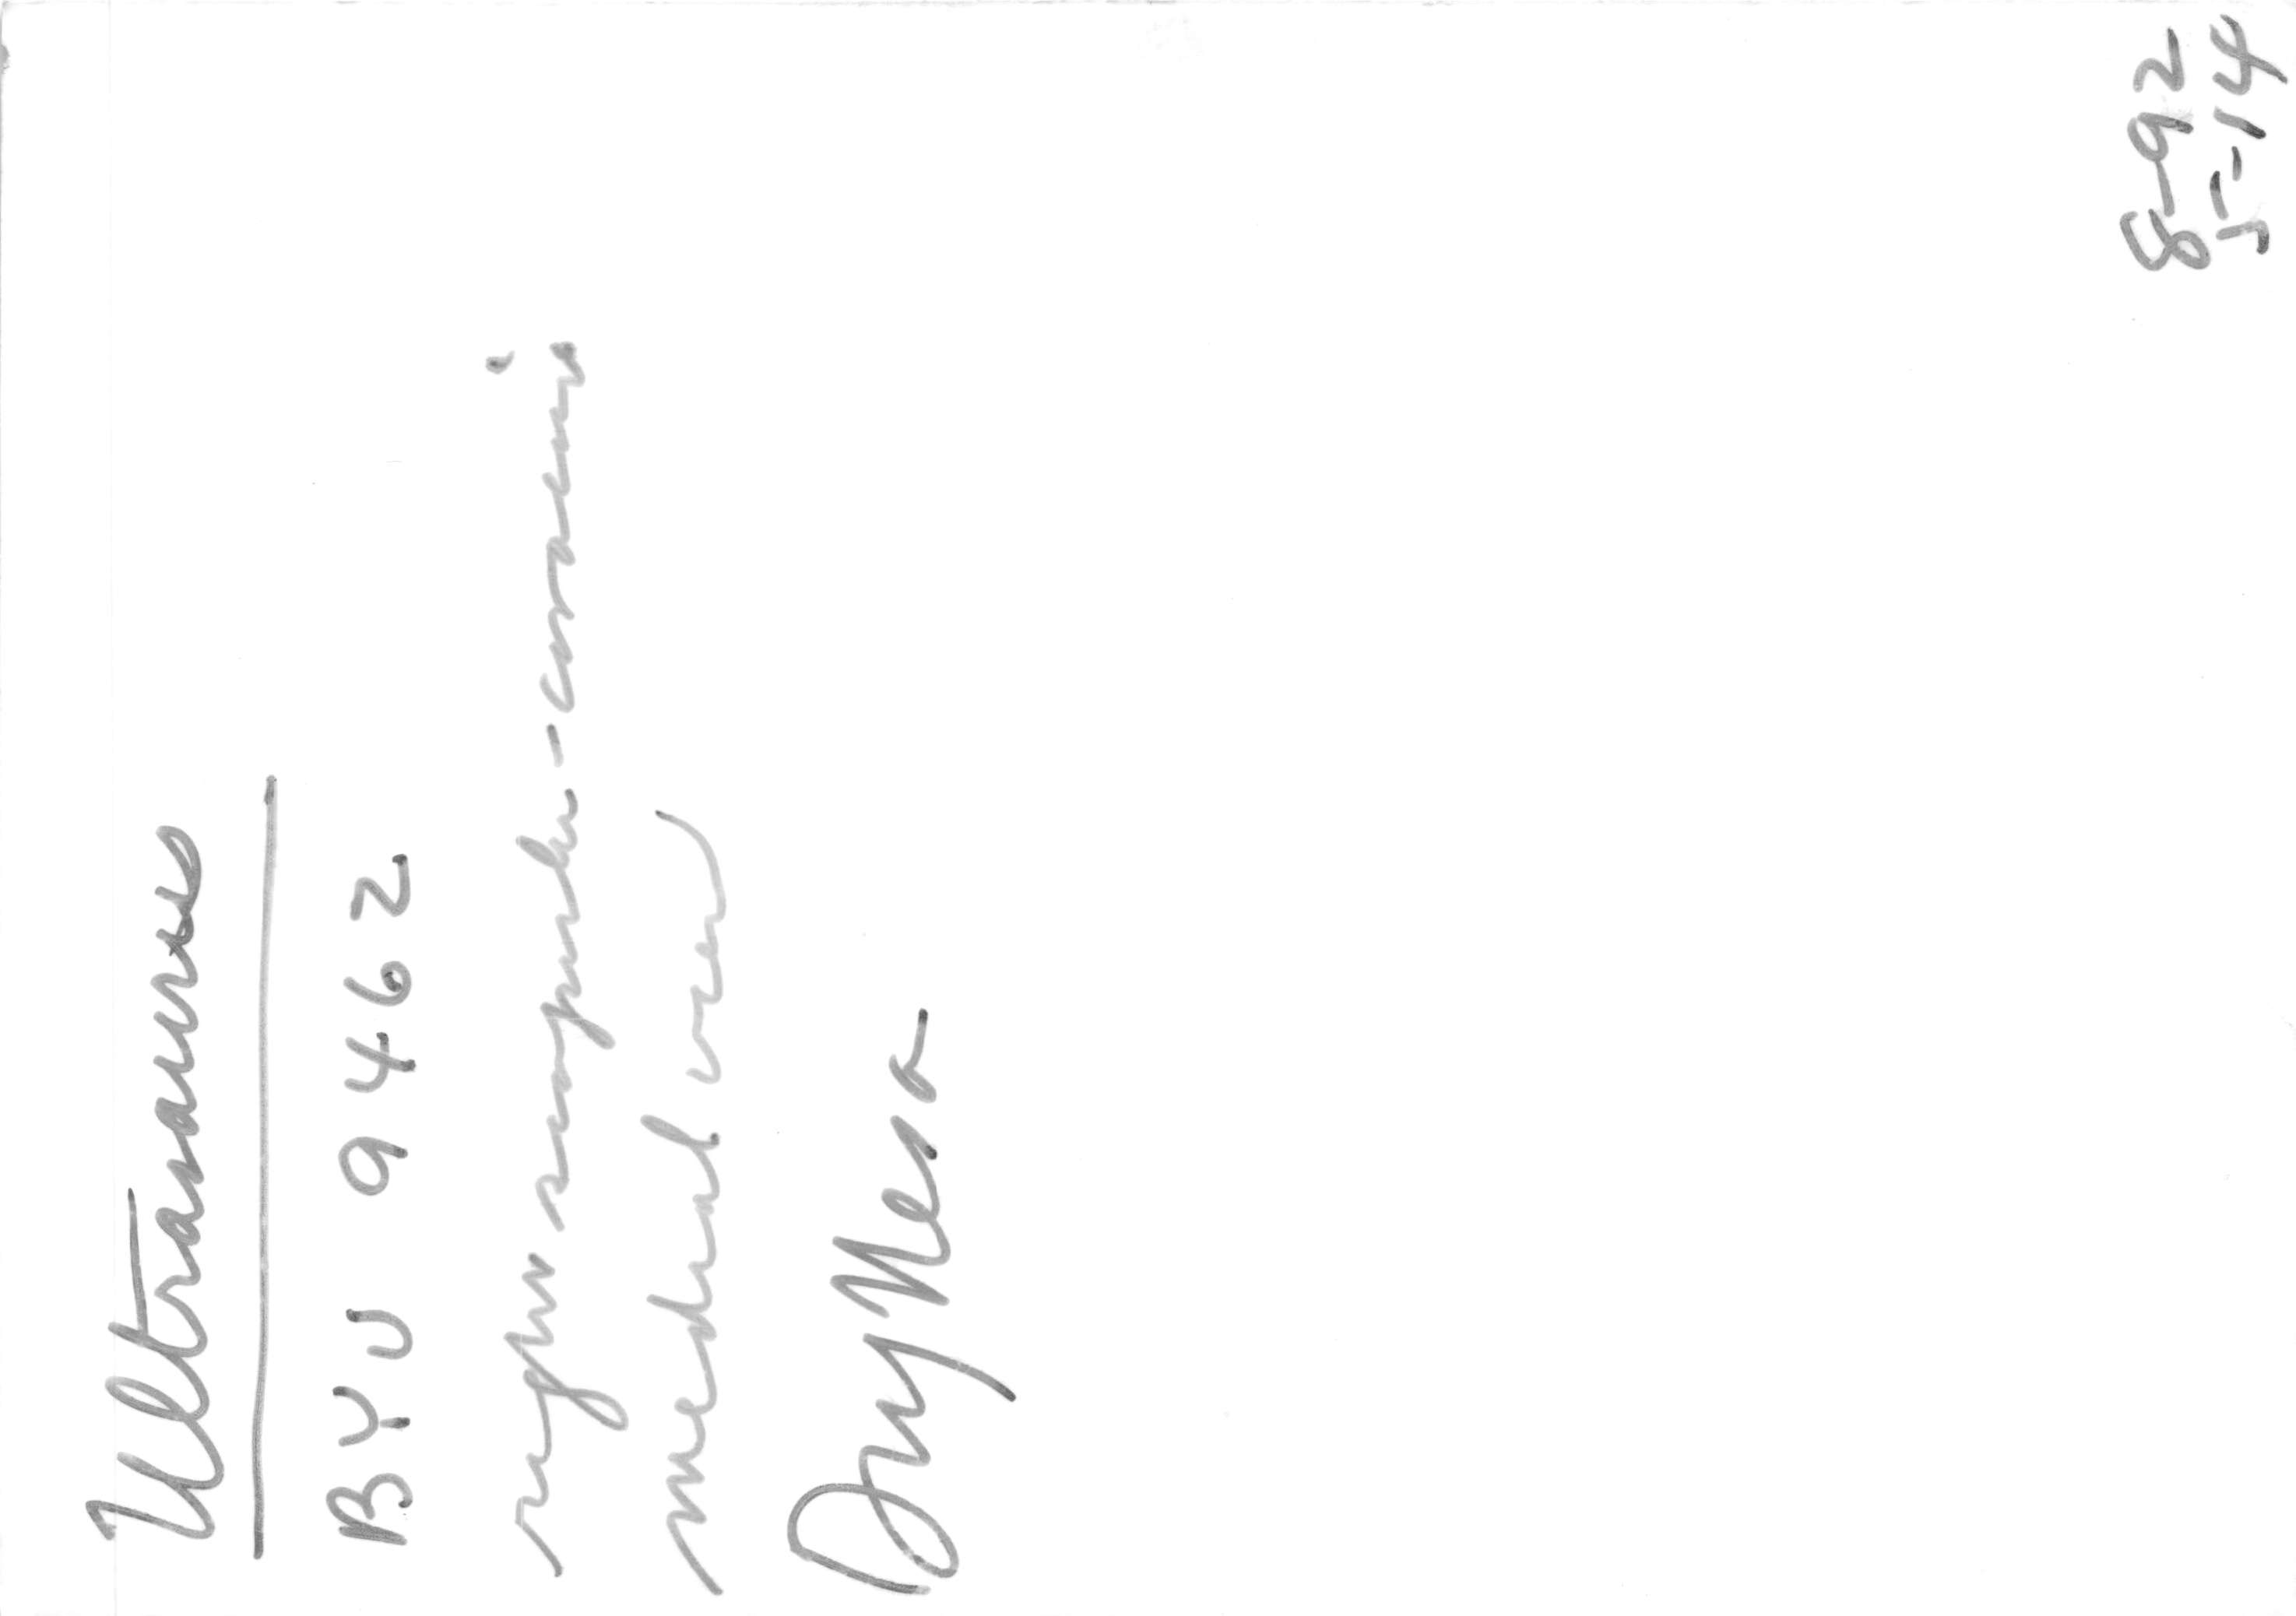 Ultrasaurus
BYU 9462
right scapula-coracoid
medial view
Dry Mesa
8-92
5-14